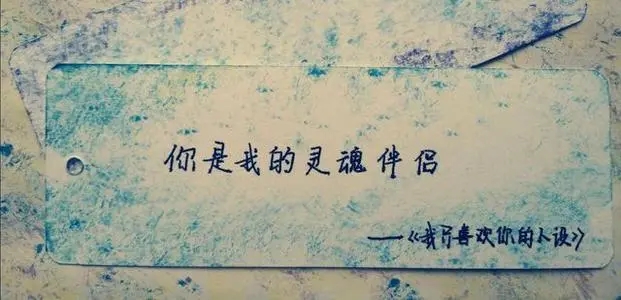 你是我的灵魂伴侣
——《我只喜欢你的人设》